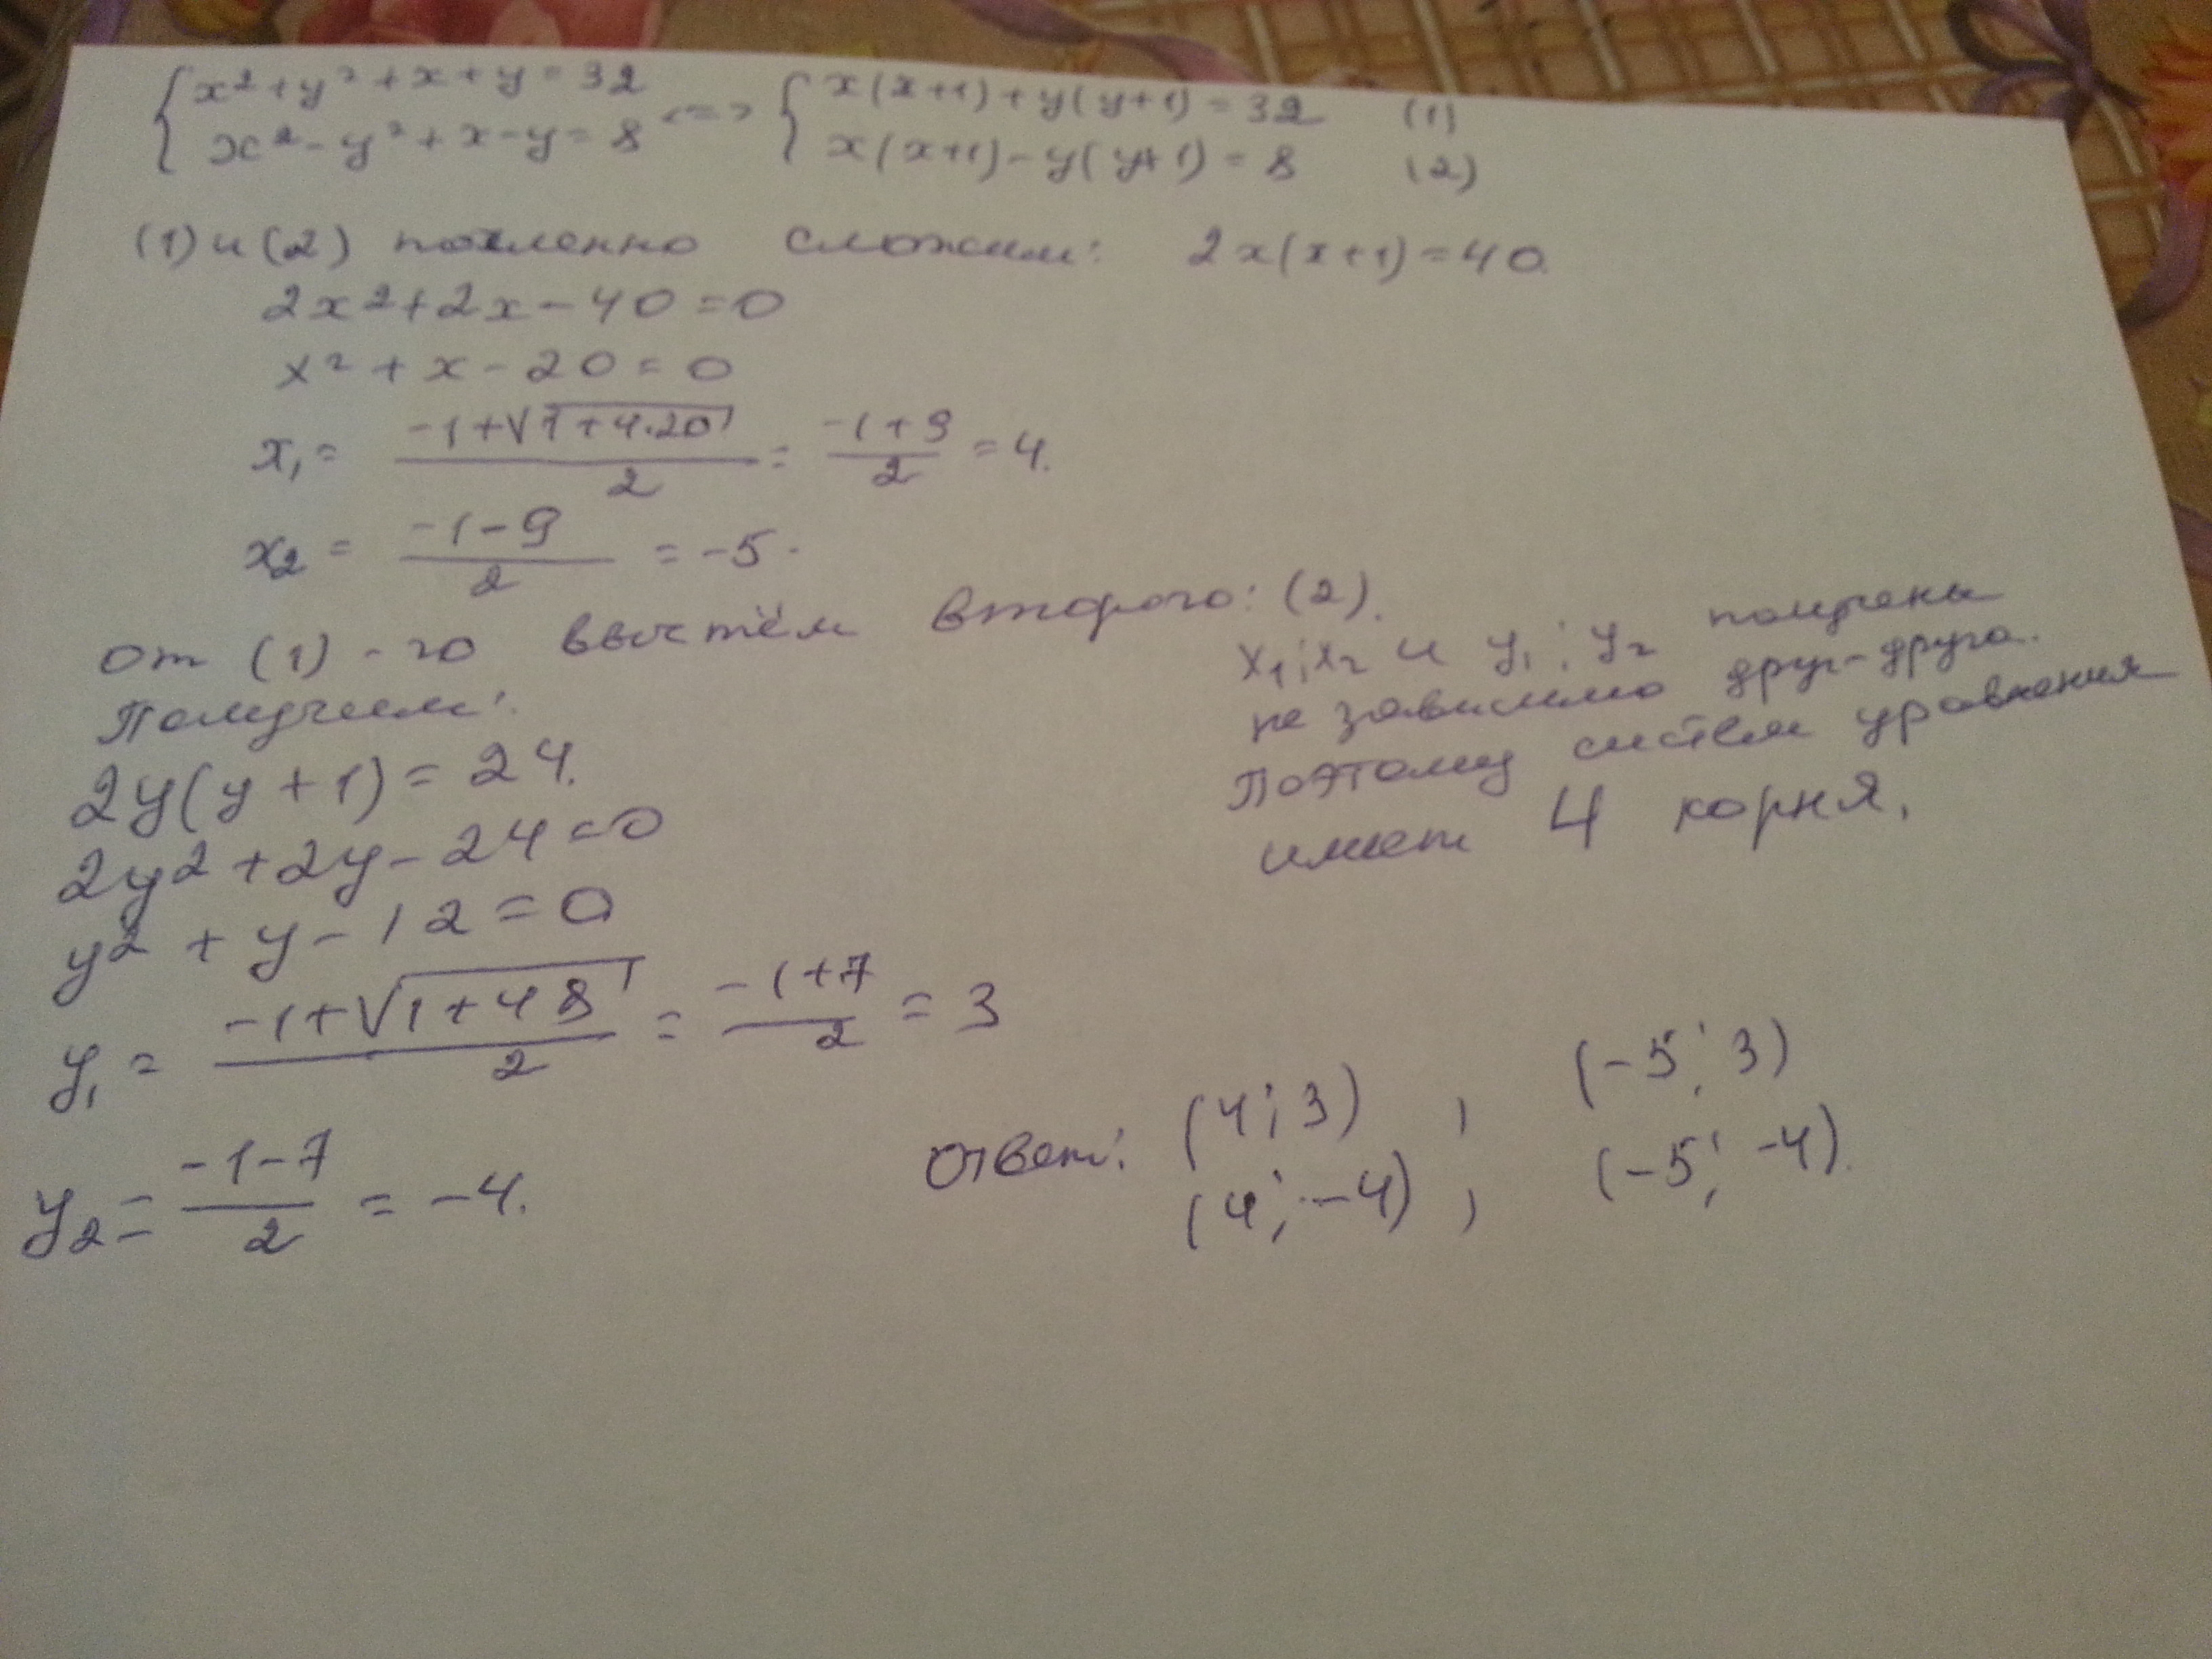 { x² + y² + x + y = 32 <=> { x(x+1) + y(y+1) = 32 (1)
x² - y² + x - y = 8 x(x+1) - y(y+1) = 8 (2)
(1) и (2) почленно сложим: 2x(x+1) = 40.
2x² + 2x - 40 = 0
x² + x - 20 = 0
x₁ = (-1+√(1+4·20))/2 = (-1+9)/2 = 4.
x₂ = (-1-9)/2 = -5.
От (1)-го вычтём второго: (2).
Получаем:
2y(y+1) = 24.
2y² + 2y - 24 = 0
y² + y - 12 = 0
y₁ = (-1+√(1+48))/2 = (-1+7)/2 = 3
y₂ = (-1-7)/2 = -4.
x₁; x₂ и y₁; y₂ получены
не зависимо друг-друга.
Поэтому систем уравнения
имеет 4 корня.
Ответ: (4; 3), (-5; 3)
(4; -4), (-5; -4).